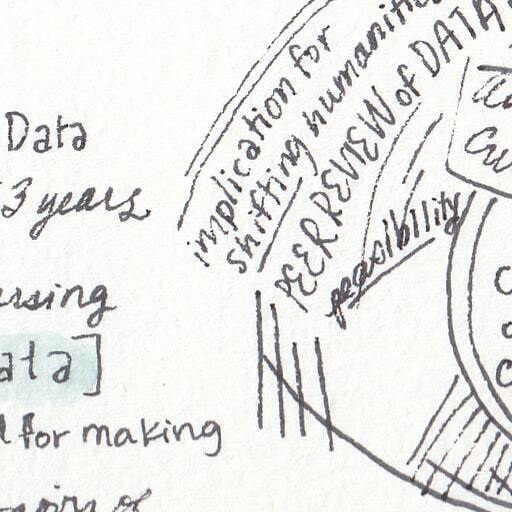 Data
3 years
ata]
for making
of
implication for
shifting humanities
PEER REVIEW of DATA
feasibility